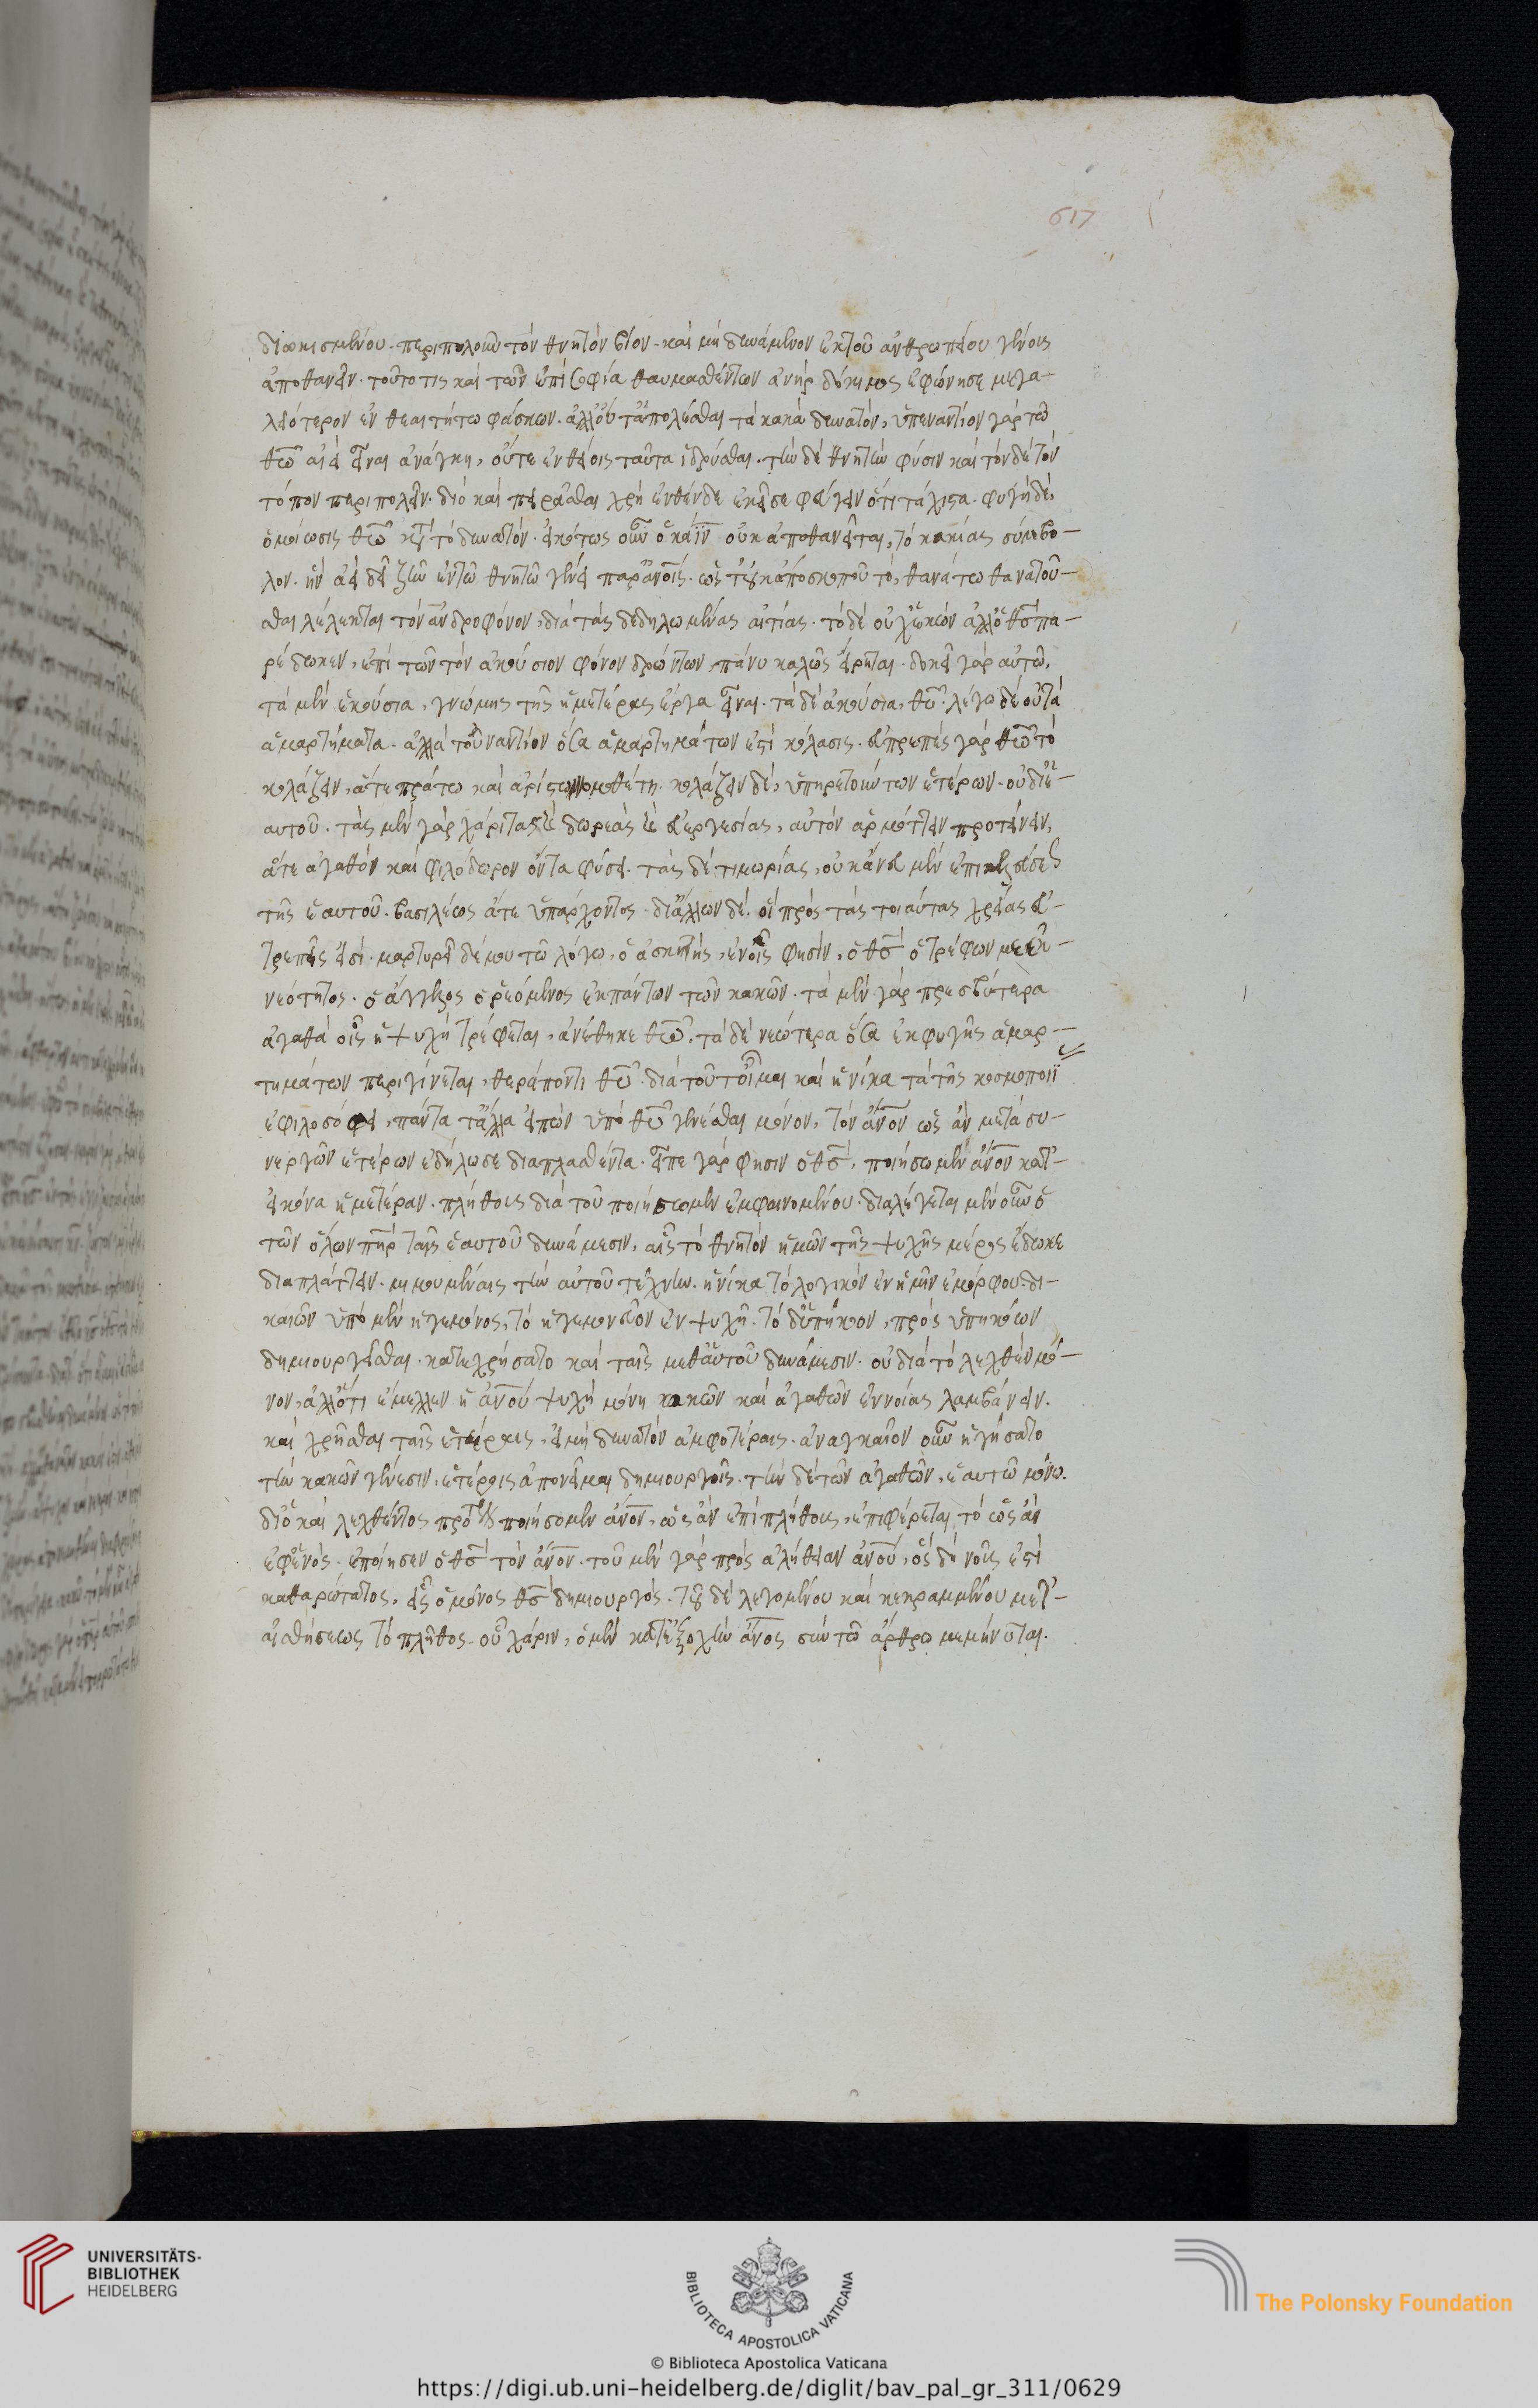 617
διωκισμένου. περιπολοῦν τὸν θνητὸν βίον. καὶ μὴ δυνάμενον ἐκ τοῦ ἀνθρωπείου γένους
ἀποθανεῖν. τοῦτό τις καὶ τῶν ἐπὶ σοφία θαυμασθέντων ἀνὴρ δόκιμος ἐφώνησε μεγα-
λειότερον ἐν θεαιτήτω φάσκων. ἀλλ' οὔτ' ἀπολέσθαι τὰ κακὰ δυνατὸν, ὑπεναντίον γάρ τῶ
θῶ αἰεὶ εἶναι ἀνάγκη, οὔτε ἐν θείοις ταῦτα ἱδρύσθαι. τὴν δὲ θνητὴν φύσιν καὶ τόνδε τὸν
τόπον περιπολεῖν. διὸ καὶ πειρᾶσθαι χρὴ ἐνθένδε ἐκεῖσε φεύγειν ὅτι τάχιστα. φυγὴ δὲ,
ὁμοίωσις θῶ κατὰ τὸ δυνατόν. εἰκότως οὖν ὁ κάϊν οὐκ ἀποθανεῖται, τὸ κακίας σύμβο-
λον. ἣν ἀεὶ δεῖ ζῆν ἐν τῶ θνητῶ γένει παρ' ἀνοις. ὡς τ' οὐκ ἀπὸ σκοποῦ τὸ, θανάτω θανατοῦ-
σθαι λέλεκται τὸν ἀνδροφόνον, διὰ τὰς δεδηλωμένας αἰτίας. τὸ δὲ οὐχ ἑκὼν ἀλλ' ὁ θς πα-
ρέδωκεν, ἐπὶ τῶν τὸν ἀκούσιον φόνον δρώντων, πάνυ καλῶς εἴρηται. δοκεῖ γὰρ αὐτῶ,
τὰ μὲν ἑκούσια, γνώμης τῆς ἡμετέρας ἔργα εἶναι. τὰ δὲ ἀκούσια, θυ. λέγω δὲ οὐ τὰ
ἁμαρτήματα. ἀλλὰ τοὐναντίον ὅσα ἁμαρτημάτων ἐστὶ κόλασις. ἀπρεπὲς γὰρ θῶ τὸ
κολάζειν, ἅτε πρώτω καὶ ἀρίστω νομοθέτη. κολάζειν δὲ, ὑπηρετούντων ἑτέρων. οὐ δι' ἑ-
αυτοῦ. τὰς μὲν γὰρ χάριτας καὶ δωρεὰς καὶ εὐεργεσίας, αὐτὸν ἁρμόττειν προτείνειν,
ἅτε ἀγαθὸν καὶ φιλόδωρον ὄντα φύσει. τὰς δὲ τιμωρίας, οὐκ ἄνευ μὲν ἐπικελεύσεως
τῆς ἑαυτοῦ. βασιλέως ἅτε ὑπάρχοντος. δι' ἄλλων δὲ. οἳ πρὸς τὰς τοιαύτας χρείας εὐ-
τρεπεῖς εἰσί. μαρτυρεῖ δέ μου τῶ λόγω, ὁ ἀσκητὴς, ἐν οἷς φησὶν, ὁ θς ὁ τρέφων με ἐκ
νεότητος. ὁ ἄγγελος ὁ ῥυόμενος ἐκ πάντων τῶν κακῶν. τὰ μὲν γὰρ πρεσβύτερα
ἀγαθὰ οἷς ἡ ψυχὴ τρέφεται, ἀνέθηκε θῶ. τὰ δὲ νεώτερα ὅσα ἐκ φυγῆς ἁμαρ-
τημάτων περιγίνεται, θεράποντι θυ. διὰ τοῦτ' οἶμαι καὶ ἡνίκα τὰ τῆς κοσμοποιϊ
ἐφιλοσόφει, πάντα τἄλλα εἰπὼν ὑπὸ θυ γενέσθαι μόνον, τὸν ἄνον ὡς ἂν μετὰ συ-
νεργῶν ἑτέρων ἐδήλωσε διαπλασθέντα. εἶπε γάρ φησιν ὁ θς, ποιήσωμεν ἄνον κατ'
εἰκόνα ἡμετέραν. πλήθους διὰ τοῦ ποιήσωμεν ἐμφαινομένου. διαλέγεται μὲν οὖν ὁ
τῶν ὅλων πηρ ταῖς ἑαυτοῦ δυνάμεσιν, αἷς τὸ θνητὸν ἡμῶν τῆς ψυχῆς μέρος ἔδωκε
διαπλάττειν. μιμουμέναις τὴν αὐτοῦ τέχνην. ἡνίκα τὸ λογικὸν ἐν ἡμῖν ἐμόρφου. δι-
καιῶν ὑπὸ μὲν ἡγεμόνος, τὸ ἡγεμονεῦον ἐν ψυχῆ. τὸ δ' ὑπήκοον, πρὸς ὑπηκόων
δημιουργεῖσθαι. κατεχρήσατο καὶ ταῖς μεθ' αὑτοῦ δυνάμεσιν. οὐ διὰ τὸ λεχθὲν μό-
νον, ἀλλ' ὅτι ἔμελλεν ἡ ἀνου ψυχὴ μόνη κακῶν καὶ ἀγαθῶν ἐννοίας λαμβάνειν.
καὶ χρῆσθαι ταῖς ἑτέραις, εἰ μὴ δυνατὸν ἀμφοτέραις. ἀναγκαῖον οὖν ἡγήσατο
τὴν κακῶν γένεσιν, ἑτέροις ἀπονεῖμαι δημιουργοῖς. τὴν δὲ τῶν ἀγαθῶν, ἑαυτῶ μόνω.
διὸ καὶ λεχθέντος πρότερον ποιήσομεν ἄνον, ὡς ἂν ἐπὶ πλήθους, ἐπιφέρεται τὸ ὡς ἂν
ἐφ' ἑνός. ἐποίησεν ὁ θς τὸν ἄνον. τοῦ μὲν γὰρ πρὸς ἀλήθειαν ἀνου, ὃς δὴ νοῦς ἐστὶ
καθαρώτατος, εἷς ὁ μόνος θς δημιουργός. τοῦ δὲ λεγομένου καὶ κεκραμμένου μετ'
αἰσθήσεως τὸ πλῆθος. οὗ χάριν, ὁ μὲν κατ' ἐξοχὴν ἄνος σὺν τῶ ἄρθρω μεμήνυται.
UNIVERSITÄTS-
BIBLIOTHEK
HEIDELBERG
BIBLIOTECA APOSTOLICA VATICANA
The Polonsky Foundation
© Biblioteca Apostolica Vaticana
https://digi.ub.uni-heidelberg.de/diglit/bav_pal_gr_311/0629